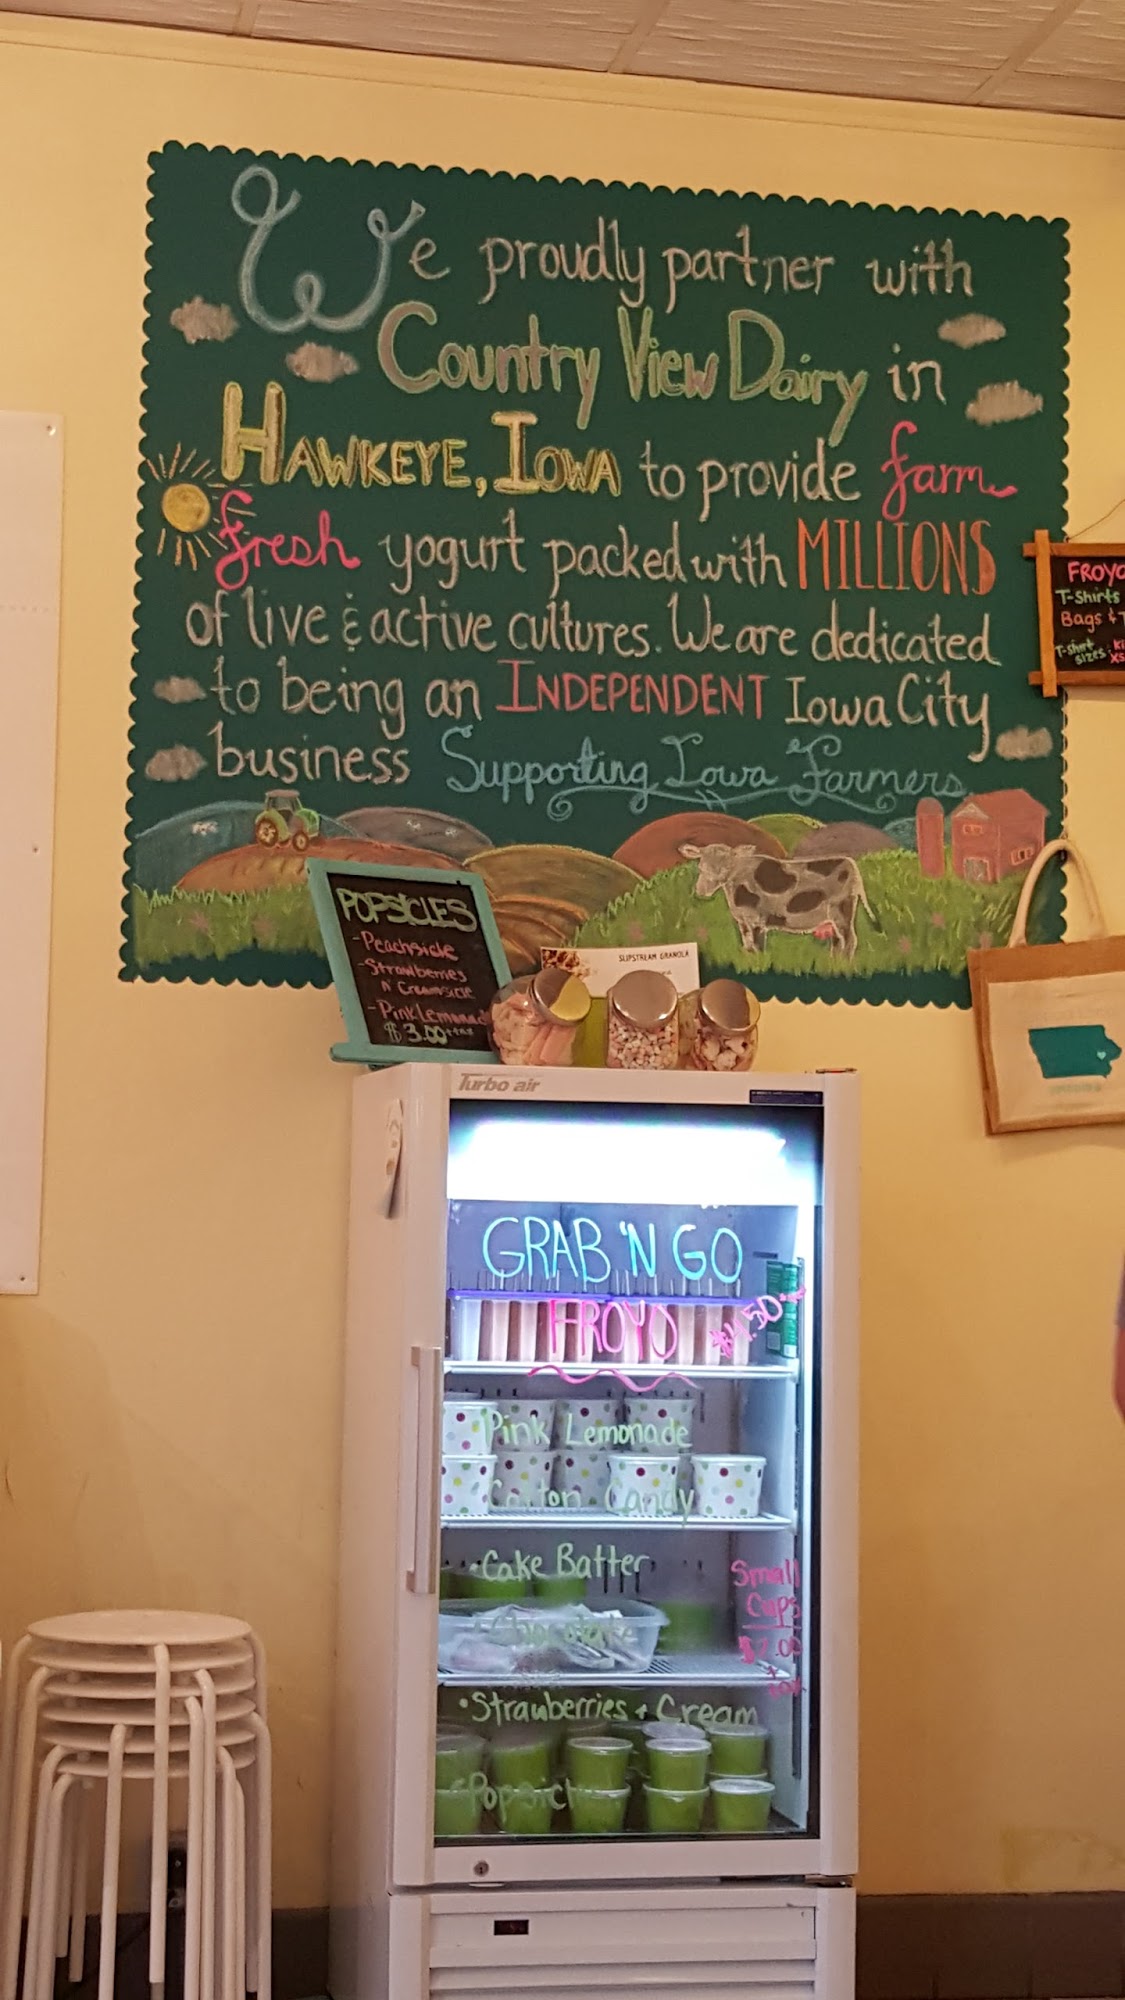 We proudly partner with
Country View Dairy in
HAWKEYE, IOWA to provide farm
fresh yogurt packed with MILLIONS
of live & active cultures. We are dedicated
to being an INDEPENDENT Iowa City
business Supporting Iowa Farmers.
FROYO
T-Shirts
Bags &
T-shirt
sizes:
XS
POPSICLES
- Peachsicle
- Strawberries
n' Creamsicle
- Pink Lemonade
$3.00 + tax
SLIPSTREAM GRANOLA
Turbo air
GRAB 'N GO
FROYO $4.50
Pink Lemonade
Cotton Candy
• Cake Batter
Chocolate
Small
Cups
$2.00
+
tax
• Strawberries + Cream